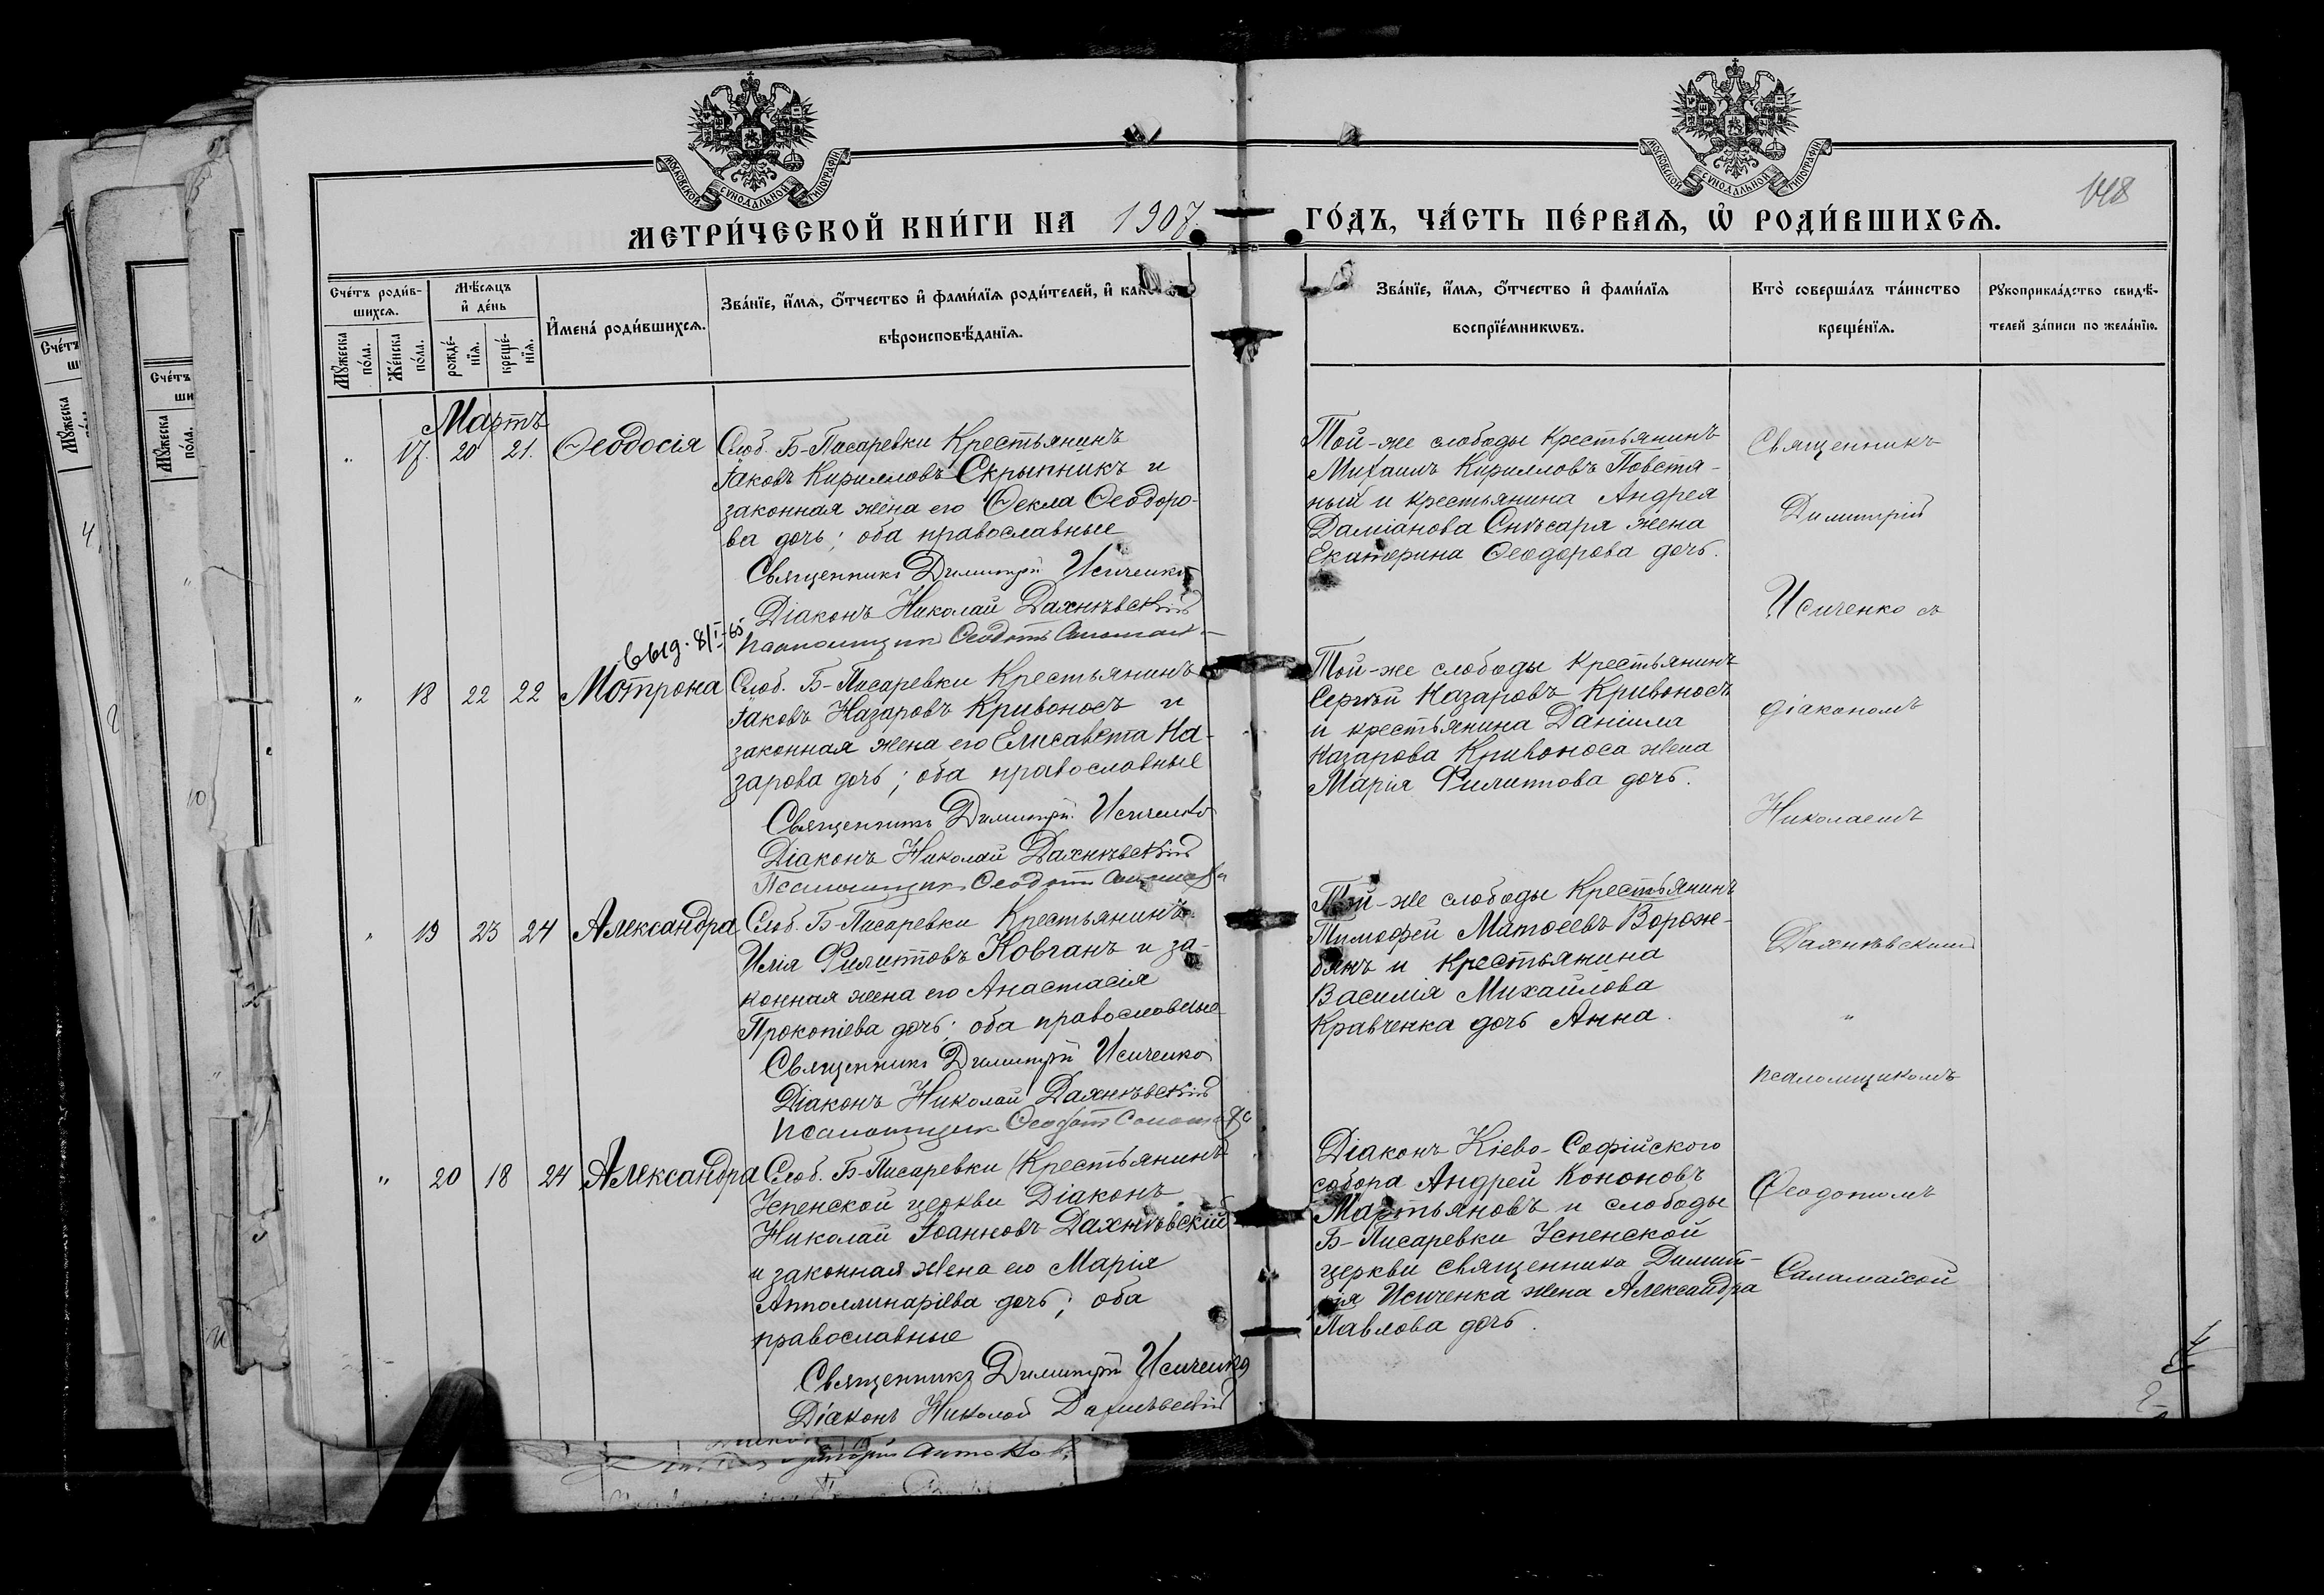 МОСКОВСКОЙ СѴНОДАЛЬНОЙ ТИПОГРАФІИ
МОСКОВСКОЙ СѴНОДАЛЬНОЙ ТИПОГРАФІИ
148
МЕТРИ́ЧЕСКОЙ КНИ́ГИ НА 1907 ГО́ДЪ, ЧА́СТЬ ПЕ́РВАЯ, Ѽ РОДИ́ВШИХСЯ.
Сче́тъ роди́в-
шихся.
Мꙋ́жеска по́ла.
Же́нска по́ла.
Мѣ́сяцъ
и҆ де́нь
рожде́-
нїя.
креще́-
нїя.
И҆мена̀ роди́вшихся.
Зва́нїе, и҆́мя, ѻ҆́тчество и҆ фами́лїя роди́телей, и҆
вѣроисповѣ́данїя.
Зва́нїе, и҆́мя, ѻ҆́тчество и҆ фами́лїя
воспрїе́мникѡвъ.
Кто̀ соверша́лъ та́инство
креще́нїя.
Рꙋкоприкла́дство свидѣ́-
телей за́писи по жела́нїю.
Мартъ
" 17. 20 21. Ѳеодосія
Слоб. Б-Писаревки Крестьянинъ
Іаковъ Кирилловъ Скрыпникъ и
законная жена его Ѳекла Ѳеодоро-
ва дочь; оба православные
Священникъ Димитрій Исиченко
Діаконъ Николай Дахнѣвскій
Псаломщикъ Ѳеодотъ
Той-же слободы крестьянинъ
Михаилъ Кирилловъ Повстя-
ный и крестьянина Андрея
Даміанова Снѣсаря жена
Екатерина Ѳеодорова дочь.
выд. 8/I-65
" 18 22 22 Мотрона
Слоб. Б-Писаревки Крестьянинъ
Іаковъ Назаровъ Кривоносъ и
законная жена его Елисавета На-
зарова дочь; оба православные
Священникъ Димитрій Исиченко
Діаконъ Николай Дахнѣвскій
Псаломщикъ Ѳеодотъ
Той-же слободы крестьянинъ
Сергѣй Назаровъ Кривоносъ
и крестьянина Даніила
Назарова Кривоноса жена
Марія Филиппова дочь.
" 19 23 24 Александра
Слоб. Б-Писаревки Крестьянинъ
Илія Филипповъ Ковганъ и за-
конная жена его Анастасія
Прокопіева дочь; оба православные
Священникъ Димитрій Исиченко
Діаконъ Николай Дахнѣвскій
Псаломщикъ Ѳеодотъ
Той-же слободы Крестьянинъ
Тимофей Матѳеевъ Ворож-
бянъ и крестьянина
Василія Михайлова
Кравченка дочь Анна.
" 20 18 24 Александра
Слоб. Б-Писаревки Крестьянинъ
Успенской церкви Діаконъ
Николай Іоанновъ Дахнѣвскій
и законная жена его Марія
Апполлинаріева дочь; оба
православные
Священникъ Димитрій Исиченко
Діаконъ Николай Дахнѣвскій
Діаконъ Кіево-Софійского
собора Андрей Кононовъ
Мартьяновъ и слободы
Б-Писаревки Успенской
церкви священника Димит-
рія Исиченка жена Александра
Павлова дочь.
Священникъ
Димитрій
Исиченко съ
діакономъ
Николаемъ
Дахнѣвскимъ
"
псаломщикомъ
Ѳеодотомъ
Саламахой